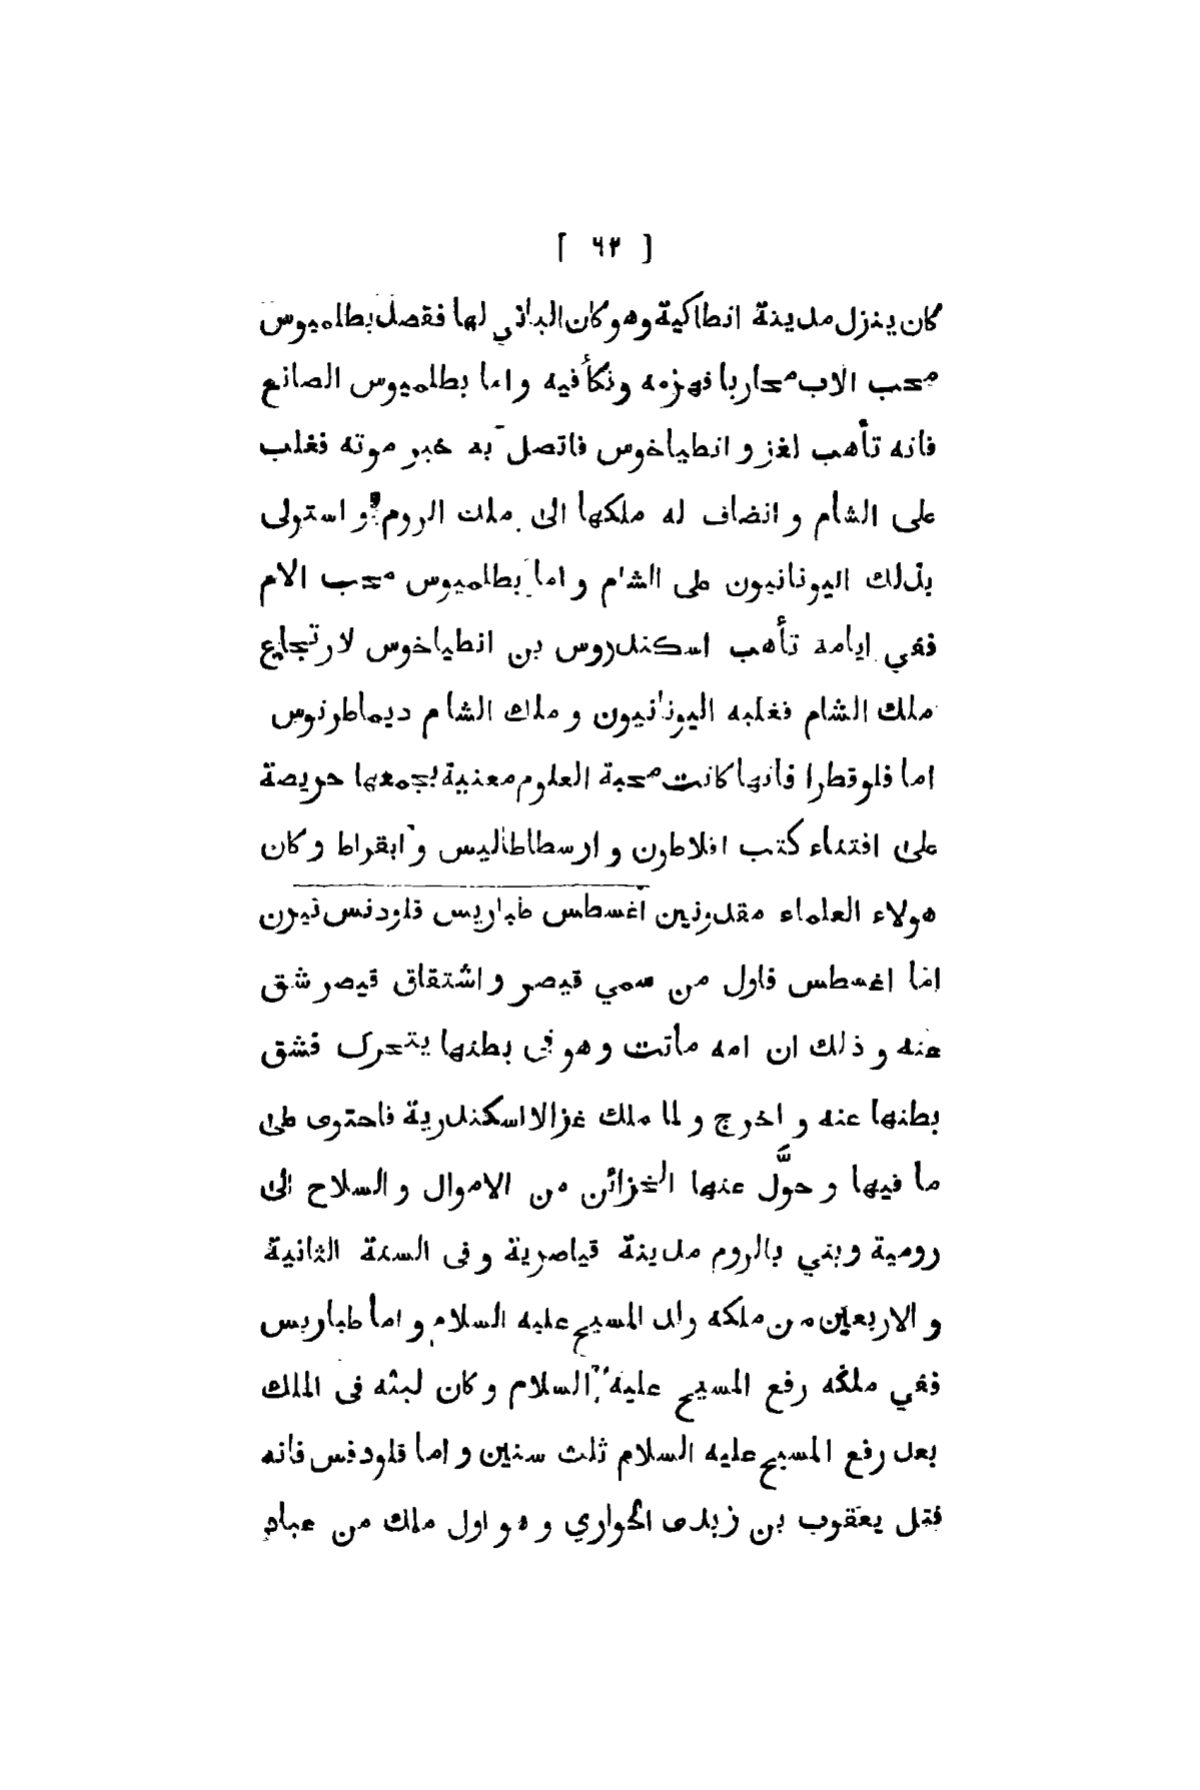 [ ٦٢ ]
كان ينزل مدينة انطاكية وهو كان الباني لها فقصل بطلميوس
محب الاب محاربا فهزمه ونكأ فيه واما بطلميوس الصانع
فانه تأهب لغزو انطياخوس فاتصل به خبر موته فغلب
على الشأم و انضاف له ملكها الى ملك الروم و استولى
بذلك اليونانيون على الشام و اما بطلميوس محب الام
ففي ايامه تأهب اسكندروس بن انطياخوس لارتجاع
ملك الشام فغلبه اليونانيون و ملك الشام ديماطرنوس
اما فلوقطرا فانها كانت محبة العلوم معنية بجمعها حريصة
على اقتناء كتب افلاطون و ارسطاطاليس و ابقراط و كان
هولاء العلماء مقدونين اغسطس طباريس قلودفس نيرن
اما اغسطس فاول من سمي قيصر و اشتقاق قيصر شق
عنه و ذلك ان امه مأتت و هو في بطنها يتحرك فشق
بطنها عنه و اخرج و لما ملك غزا الاسكندرية فاحتوى على
ما فيها و حوَّل عنها الخزائن من الاموال و السلاح الى
رومية وبني بالروم مدينة قياصرية و في السنة الثانية
و الاربعين من ملكه ولد المسيح عليه السلام و اما طباريس
ففي ملكه رفع المسيح عليه السلام و كان لبثه في الملك
بعد رفع المسيح عليه السلام ثلث سنين و اما قلودفس فانه
قتل يعقوب بن زبدى الحواري و هو اول ملك من عباد